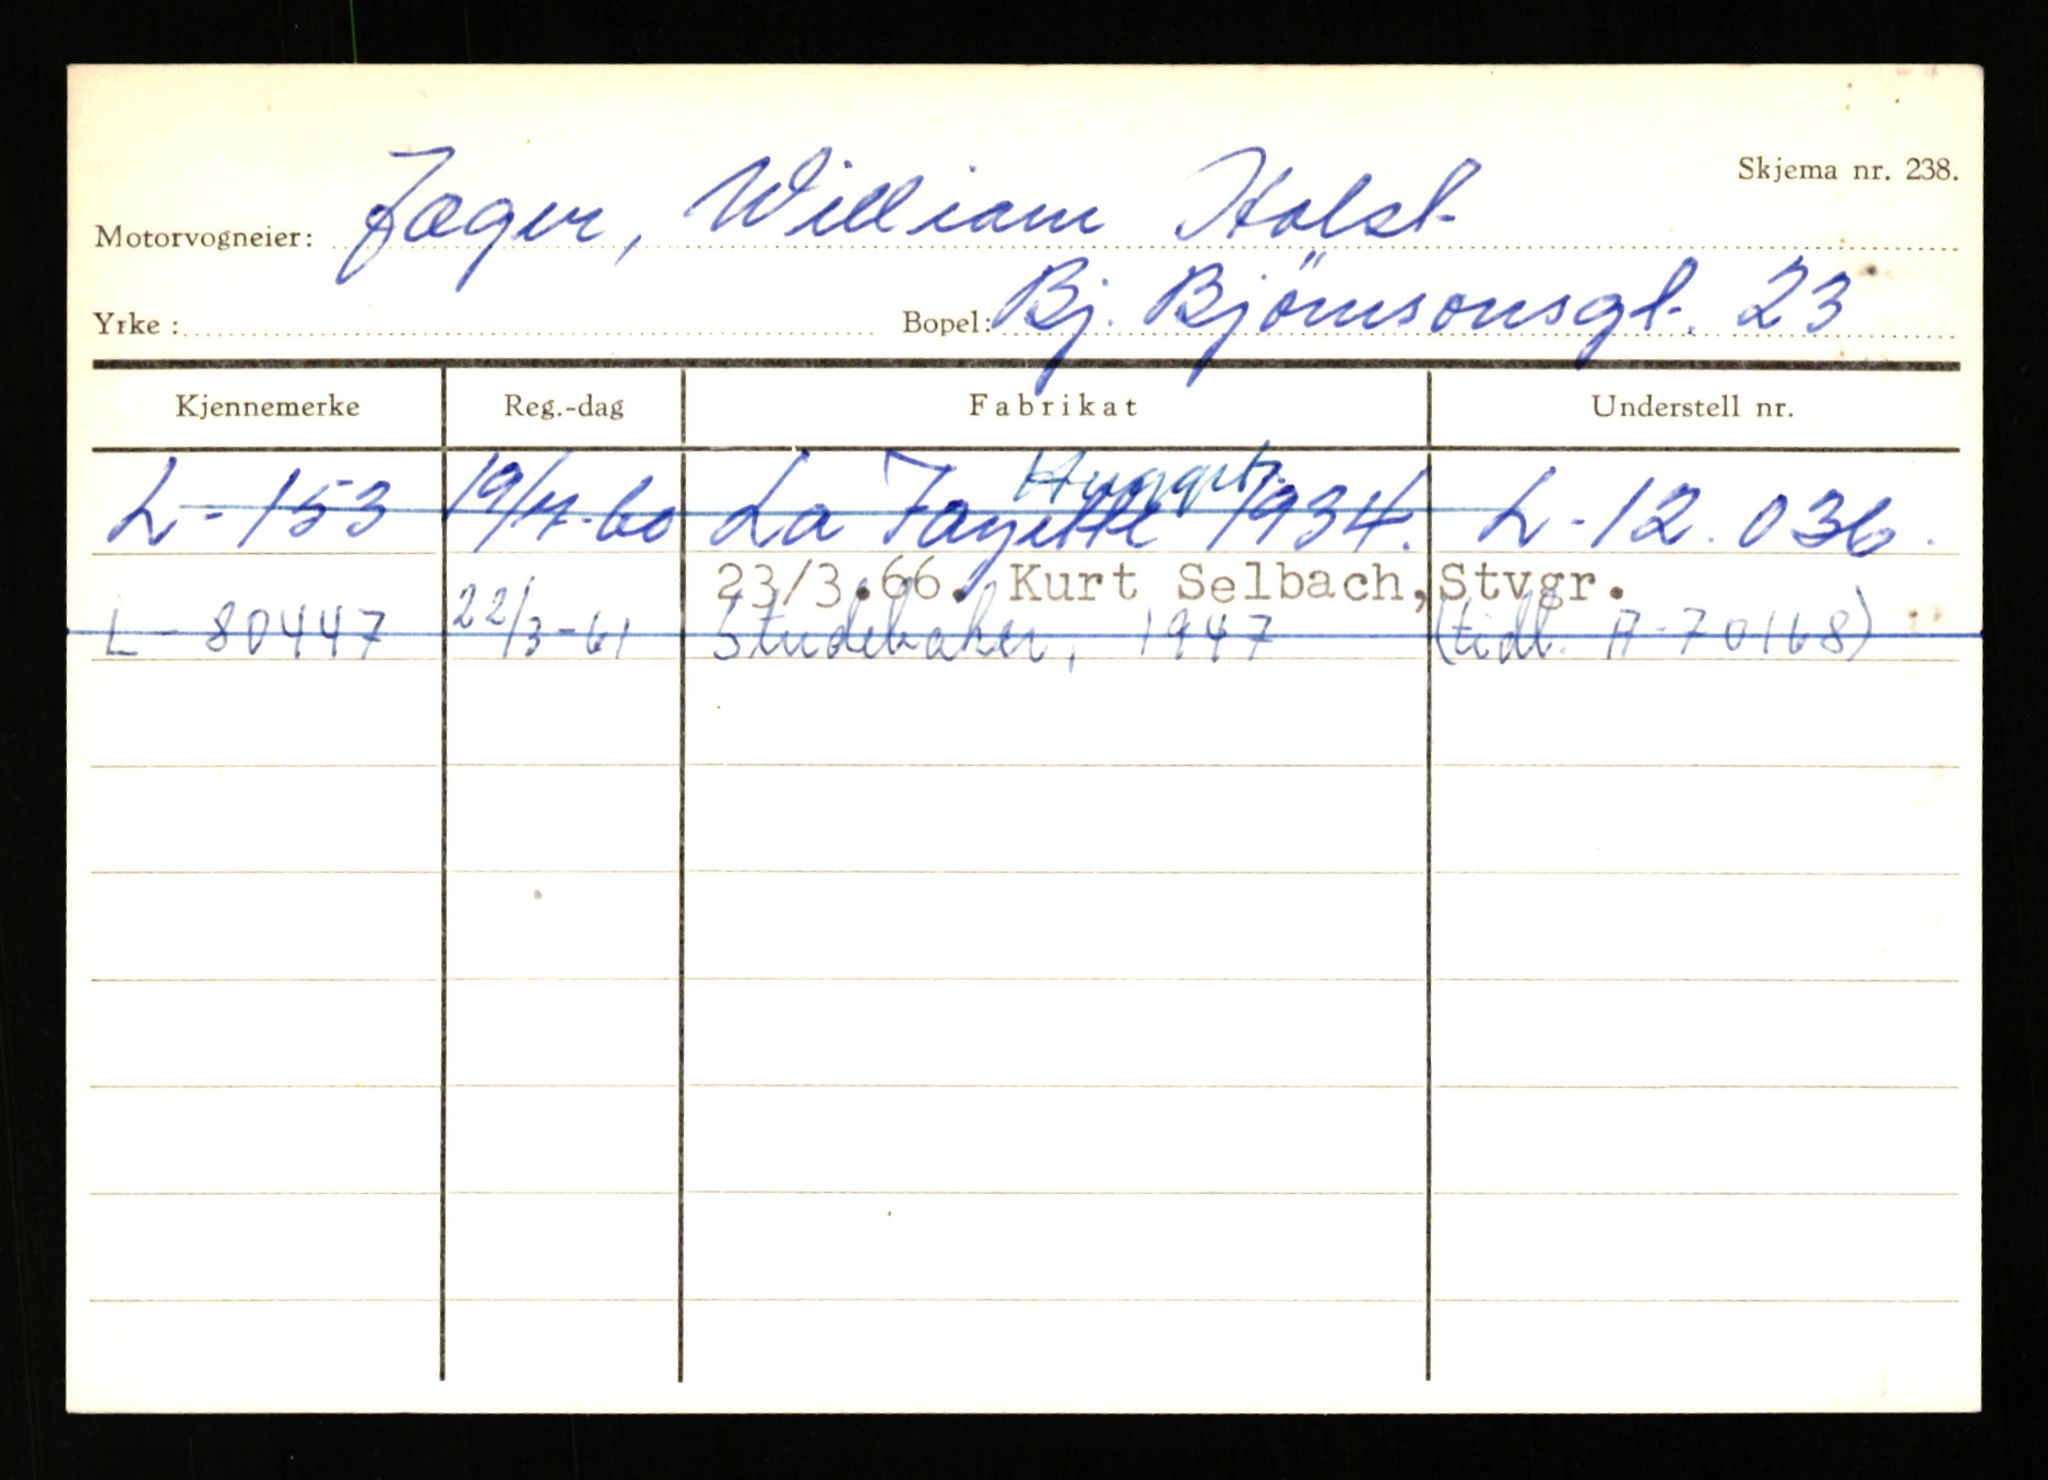 Skjema nr. 238.
Motorvogneier: Jæger, William Holst
Yrke: Bopel: Bj. Bjömsonsgt. 23
Kjennemerke Reg.-dag Fabrikat Understell nr.
Hugget.
L - 153 19/4-60 La Fayette 1934. L - 12.036.
23/3.66. Kurt Selbach, Stvgr.
L - 80447 22/3-61 Studebaker, 1947 (tidl. A-70168)